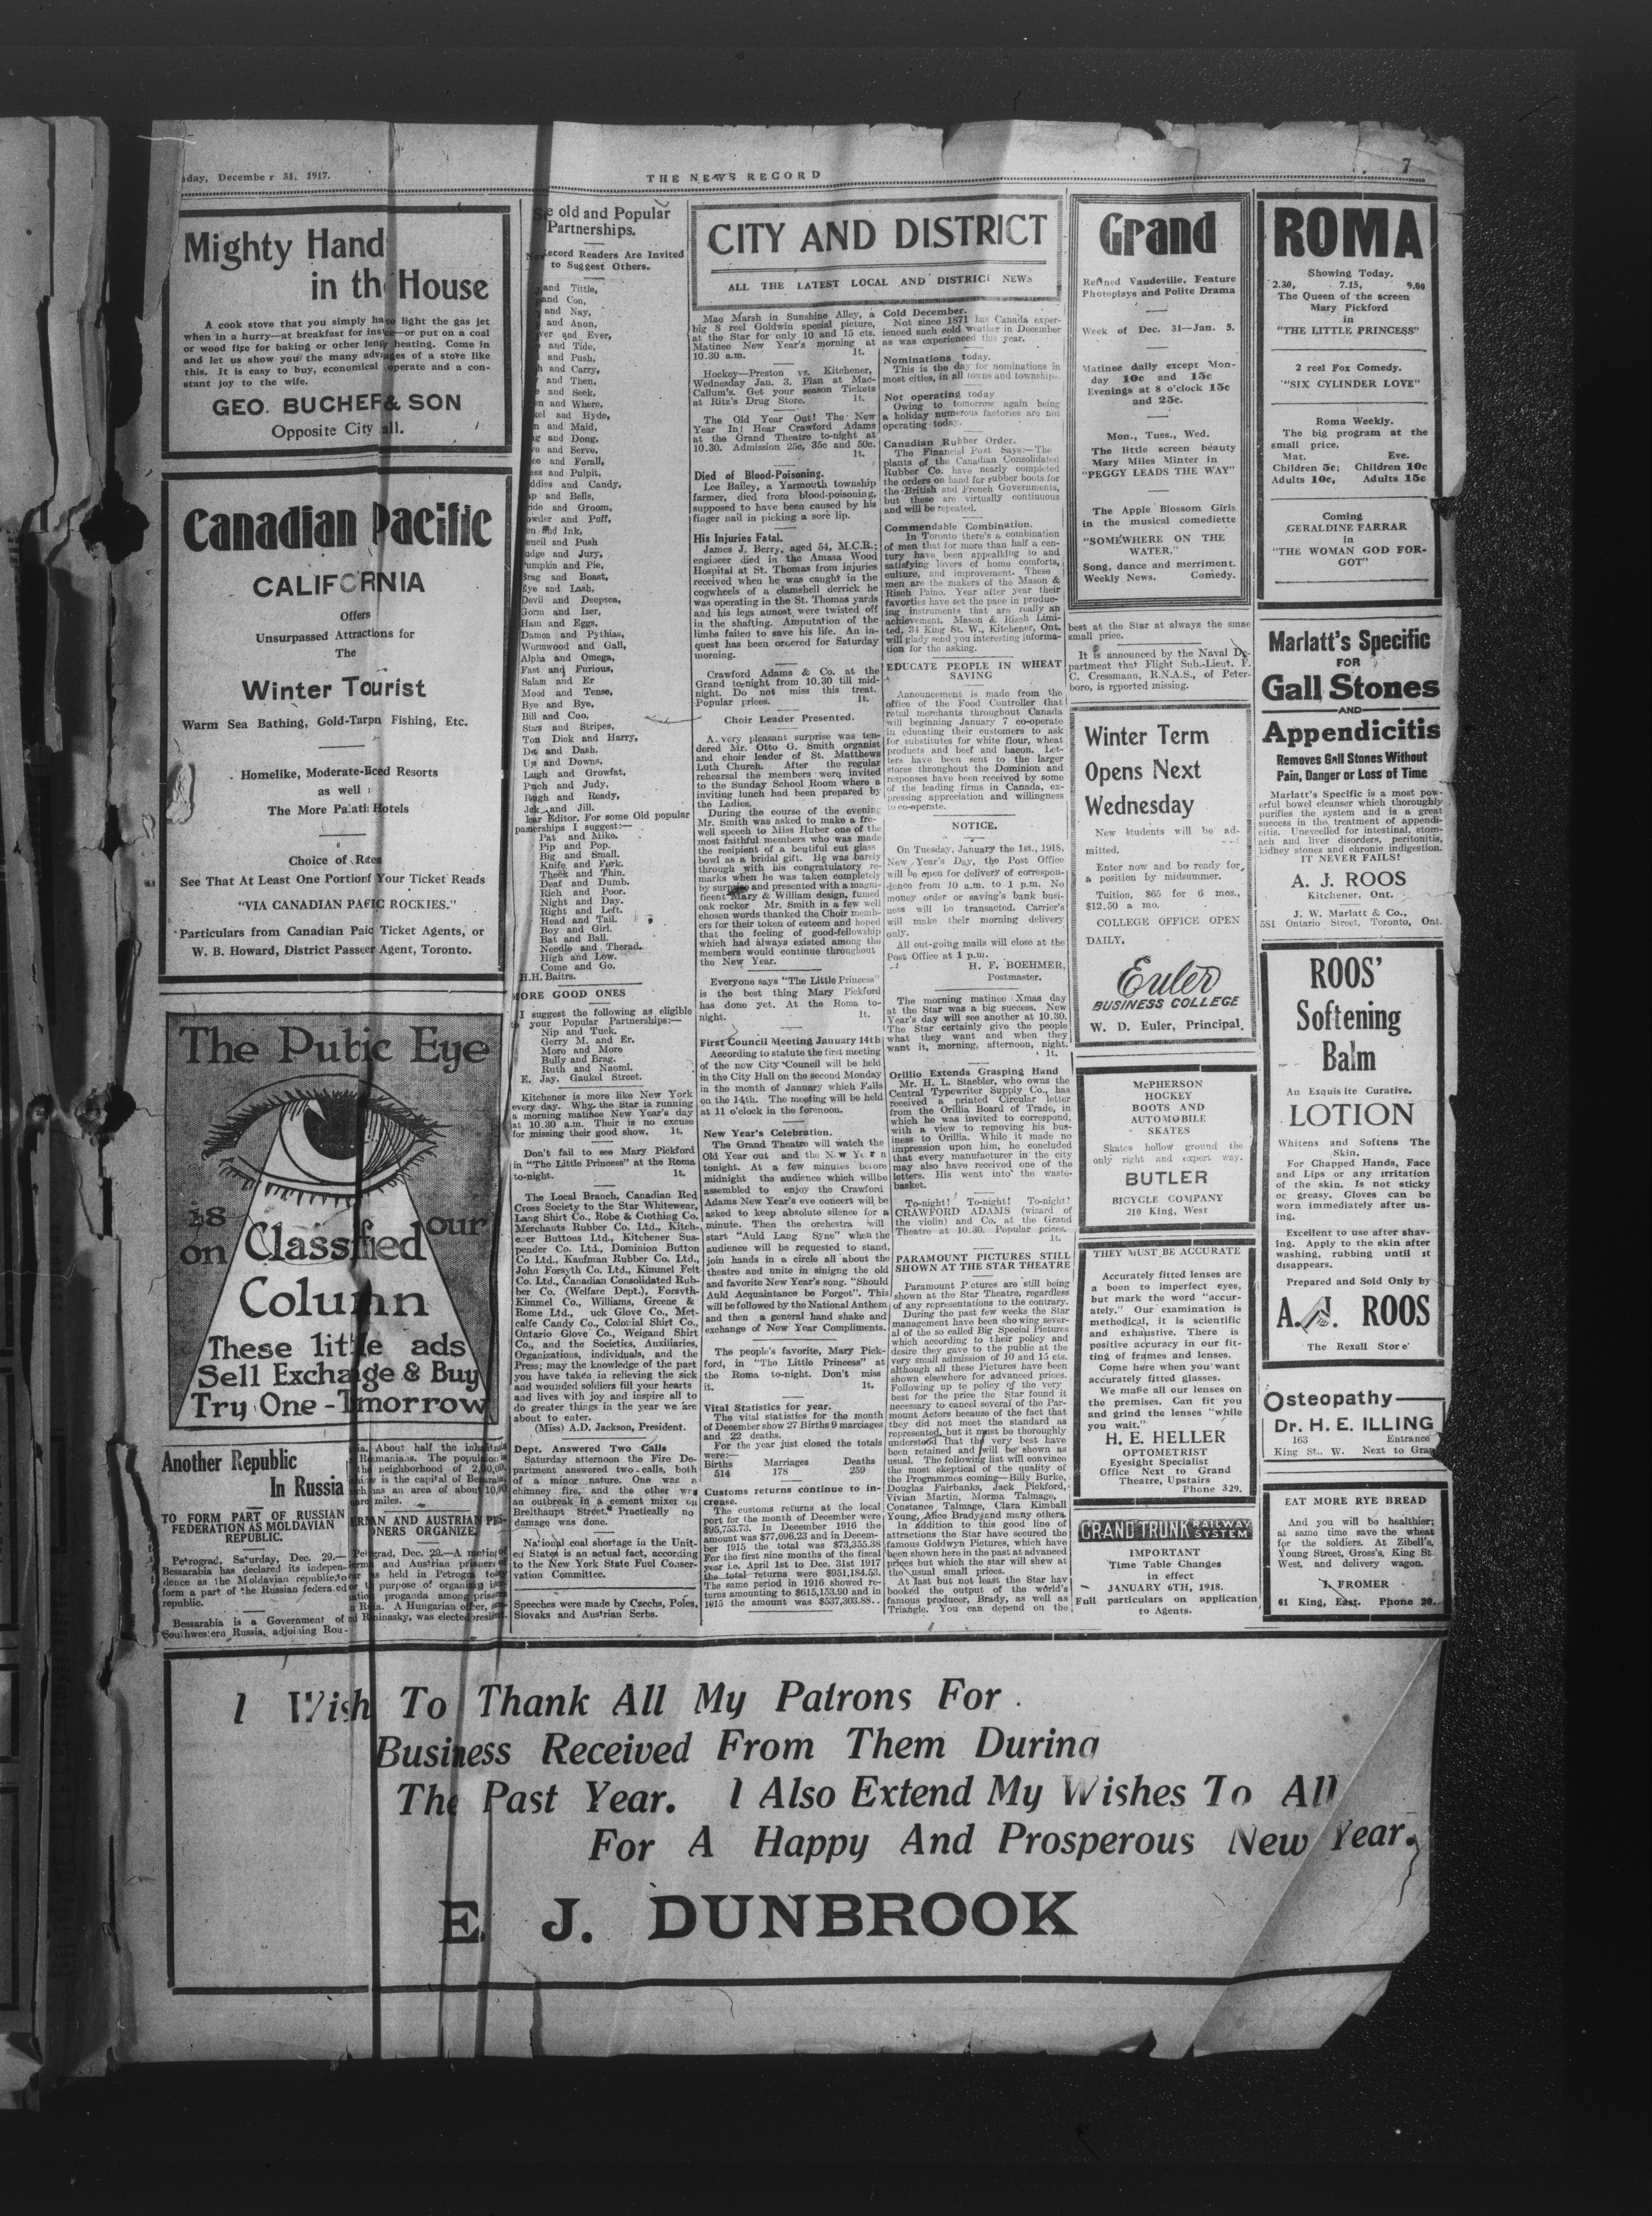 day, December 31, 1917.
THE NEWS RECORD
7
Mighty Hand
in th House
A cook stove that you simply ha to light the gas jet
when in a hurry—at breakfast for —or put on a coal
or wood fire for baking or other heating. Come in
and let us show you the many of a stove like
this. It is easy to buy, economical operate and a con-
stant joy to the wife.
GEO. BUCHER & SON
Opposite City all.
Canadian Pacific
CALIFORNIA
Offers
Unsurpassed Attractions for
The
Winter Tourist
Warm Sea Bathing, Gold-Tarpn Fishing, Etc.
Homelike, Moderate- Resorts
as well
The More Hotels
Choice of
See That At Least One Portion Your Ticket Reads
"VIA CANADIAN ROCKIES."
Particulars from Canadian Ticket Agents, or
W. B. Howard, District Agent, Toronto.
The Public Eye
is our
on Classified
Column
These little ads
Sell Exchange & Buy
Try One - Tmorrow
Another Republic
In Russia
TO FORM PART OF RUSSIAN
FEDERATION AS MOLDAVIAN
REPUBLIC.
Petrograd, Saturday, Dec. 29.—
Bessarabia has declared its indepen-
dence as the Moldavian republic, to
form a part of the Russian federa ed
republic.
Bessarabia is a Government of
Southwestern Russia, adjoining Rou-
About half the
The
the neighborhood of
is the capital of
has an area of about
miles.
AND AUSTRIAN
ORGANIZE
Dec. 29.—A
and Austrian
held in
purpose of
among
A Hungarian
was elected
old and Popular
Partnerships.
Record Readers Are Invited
to Suggest Others.
and Tittle,
and Con,
and Nay,
and Anon,
and Ever,
and Tide,
and Push,
and Carry,
and Then,
and Seek,
and Where,
and Hyde,
and Maid,
and Dong.
and Serve,
and Forall,
and Pulpit,
and Candy,
and Bells,
and Groom,
and Puff,
and Ink,
and Push
and Jury,
Pumpkin and Pie,
Brag and Boast,
Eye and Lash,
Devil and Deepsea,
Gorm and Izer,
Ham and Eggs,
Damon and Pythias,
Wormwood and Gall,
Alpha and Omega,
Fast and Furious,
Salam and Er
Mood and Tense,
Bye and Bye,
Bill and Coo,
Stars and Stripes,
Tom Dick and Harry,
Dot and Dash,
Ups and Downs,
Laugh and Growfat,
and Judy,
and Ready,
and Jill.
Editor. For some Old popular
I suggest:—
Pat and Mike.
Pip and Pop.
Big and Small.
Knife and Fork.
Thick and Thin.
Deaf and Dumb.
Rich and Poor.
Night and Day.
Right and Left.
Head and Tail.
Boy and Girl.
Bat and Ball.
Needle and Therad.
High and Low.
Come and Go.
H.H. Baitrs.
MORE GOOD ONES
I suggest the following as eligible
to your Popular Partnerships:—
Nip and Tuck.
Gerry M. and Er.
More and More
Bully and Brag.
Ruth and Naomi.
E. Jay, Gaukel Street.
Kitchener is more like New York
every day. Why the Star is running
a morning matinee New Year's day
at 10.30 a.m. Their is no excuse
for missing their good show. 1t.
Don't fail to see Mary Pickford
in "The Little Princess" at the Roma
to-night. 1t.
The Local Branch, Canadian Red
Cross Society to the Star Whitewear,
Lang Shirt Co., Robe & Clothing Co.
Merchants Rubber Co. Ltd., Kitch-
ener Buttons Ltd., Kitchener Sus-
pender Co. Ltd., Dominion Button
Co Ltd., Kaufman Rubber Co. Ltd.,
John Forsyth Co. Ltd., Kimmel Felt
Co. Ltd., Canadian Consolidated Rub-
ber Co. (Welfare Dept.), Forsyth-
Kimmel Co., Williams, Greene &
Rome Ltd., uck Glove Co., Met-
calfe Candy Co., Colonial Shirt Co.,
Ontario Glove Co., Weigand Shirt
Co., and the Societies, Auxiliaries,
Organizations, individuals, and the
Press; may the knowledge of the part
you have taken in relieving the sick
and wounded soldiers fill your hearts
and lives with joy and inspire all to
do greater things in the year we are
about to enter.
(Miss) A.D. Jackson, President.
Dept. Answered Two Calls
Saturday afternoon the Fire De-
partment answered two calls, both
of a minor nature. One was a
chimney fire, and the other was
an outbreak in a cement mixer on
Breithaupt Street. Practically no
damage was done.
National coal shortage in the Unit-
ed States is an actual fact, according
to the New York State Fuel Conser-
vation Committee.
Speeches were made by Czechs, Poles,
Slovaks and Austrian Serbs.
CITY AND DISTRICT
ALL THE LATEST LOCAL AND DISTRICT NEWS
Mae Marsh in Sunshine Alley, a
big 8 reel Goldwin special picture,
at the Star for only 10 and 15 cts.
Matinee New Year's morning at
10.30 a.m. 1t.
Hockey—Preston vs. Kitchener,
Wednesday Jan. 3. Plan at Mac-
Callum's. Get your season Tickets
at Ritz's Drug Store. 1t.
The Old Year Out! The New
Year In! Hear Crawford Adams
at the Grand Theatre to-night at
10.30. Admission 25c, 35c and 50c.
1t.
Died of Blood-Poisoning.
Lee Bailey, a Yarmouth township
farmer, died from blood-poisoning,
supposed to have been caused by his
finger nail in picking a sore lip.
His Injuries Fatal.
James J. Berry, aged 54, M.C.R.;
engineer died in the Amasa Wood
Hospital at St. Thomas from injuries
received when he was caught in the
cogwheels of a clamshell derrick he
was operating in the St. Thomas yards
and his legs almost were twisted off
in the shafting. Amputation of the
limbs failed to save his life. An in-
quest has been ordered for Saturday
morning.
Crawford Adams & Co. at the
Grand to-night from 10.30 till mid-
night. Do not miss this treat.
Popular prices. 1t.
Choir Leader Presented.
A very pleasant surprise was ten-
dered Mr. Otto G. Smith organist
and choir leader of St. Matthews
Luth Church. After the regular
rehearsal the members were invited
to the Sunday School Room where a
inviting lunch had been prepared by
the Ladies.
During the course of the evening
Mr. Smith was asked to make a fre-
well speech to Miss Huber one of the
most faithful members who was made
the recipient of a beutiful cut glass
bowl as a bridal gift. He was barely
through with his congratulatory re-
marks when he was taken completely
by surprise and presented with a magni-
ficent Mary & William design, fumed
oak rocker Mr. Smith in a few well
chosen words thanked the Choir memb-
ers for their token of esteem and hoped
that the feeling of good-fellowship
which had always existed among the
members would continue throughout
the New Year.
Everyone says "The Little Princess"
is the best thing Mary Pickford
has done yet. At the Roma to-
night. 1t.
First Council Meeting January 14th
According to statute the first meeting
of the new City Council will be held
in the City Hall on the second Monday
in the month of January which Falls
on the 14th. The meeting will be held
at 11 o'clock in the forenoon.
New Year's Celebration.
The Grand Theatre will watch the
Old Year out and the New Year n
tonight. At a few minutes before
midnight the audience which willbe
assembled to enjoy the Crawford
Adams New Year's eve concert will be
asked to keep absolute silence for a
minute. Then the orchestra will
start "Auld Lang Syne" when the
audience will be requested to stand,
join hands in a circle all about the
theatre and unite in sinigng the old
and favorite New Year's song. "Should
Auld Acquaintance be Forgot". This
will be followed by the National Anthem
and then a general hand shake and
exchange of New Year Compliments.
The people's favorite, Mary Pick-
ford, in "The Little Princess" at
the Roma to-night. Don't miss
it. 1t.
Vital Statistics for year.
The vital statistics for the month
of December show 27 Births 9 marriages
and 22 deaths.
For the year just closed the totals
were:—
Births Marriages Deaths
514 178 259
Customs returns continue to in-
crease.
The customs returns at the local
port for the month of December were
$95,753.73. In December 1916 the
amount was $77,696.23 and in Decem-
ber 1915 the total was $73,355.38
For the first nine months of the fiscal
year i.e. April 1st to Dec. 31st 1917
the total returns were $951,184.53.
The same period in 1916 showed re-
turns amounting to $615,153.90 and in
1915 the amount was $537,303.88..
Cold December.
Not since 1871 has Canada exper-
ienced such cold weather in December
as was experienced this year.
Nominations today.
This is the day for nominations in
most cities, in all towns and townships.
Not operating today
Owing to tomorrow again being
a holiday numerous factories are not
operating today.
Canadian Rubber Order.
The Financial Post Says:—The
plants of the Canadian Consolidated
Rubber Co. have nearly completed
the orders on hand for rubber boots for
the British and French Governments,
but these are virtually continuous
and will be repeated.
Commendable Combination.
In Toronto there's a combination
of men that for more than half a cen-
tury have been appealking to and
satisfying lovers of home comforts,
culture, and improvement. These
men are the makers of the Mason &
Risch Paino. Year after year their
favorties have set the pace in produc-
ing instruments that are really an
achievement. Mason & Risch Limi-
ted, 34 King St. W., Kitchener, Ont.
will glady send you interesting informa-
tion for the asking.
EDUCATE PEOPLE IN WHEAT
SAVING
Announcement is made from the
office of the Food Controller that
retail merchants throughout Canada
will beginning January 7 co-operate
in educating their customers to ask
for substitutes for white flour, wheat
products and beef and bacon. Let-
ters have been sent to the larger
stores throughout the Dominion and
responses have been received by some
of the leading firms in Canada, ex-
pressing appreciation and willingness
to co-operate.
NOTICE.
On Tuesday, January the 1st., 1918,
New Year's Day, the Post Office
will be open for delivery of correspon-
dence from 10 a.m. to 1 p.m. No
money order or saving's bank busi-
ness will be transacted. Carrier's
will make their morning delivery
only.
All out-going mails will close at the
Post Office at 1 p.m.
H. F. BOEHMER,
Postmaster.
The morning matinee Xmas day
at the Star was a big success. New
Year's day will see another at 10.30.
The Star certainly give the people
what they want and when they
want it, morning, afternoon, night.
1t.
Orillio Extends Grasping Hand
Mr. H. L. Staebler, who owns the
Central Typewriter Supply Co., has
received a printed Circular letter
from the Orillia Board of Trade, in
which he was invited to correspond,
with a view to removing his bus-
iness to Orillia. While it made no
impression upon him, he concluded
that every manufacturer in the city
may also have received one of the
letters. His went into the waste-
basket.
To-night! To-night! To-night!
CRAWFORD ADAMS (wizard of
the violin) and Co. at the Grand
Theatre at 10.30. Popular prices.
1t.
PARAMOUNT PICTURES STILL
SHOWN AT THE STAR THEATRE
Paramount Pictures are still being
shown at the Star Theatre, regardless
of any representations to the contrary.
During the past few weeks the Star
management have been showing sever-
al of the so called Big Special Pictures
which according to their policy and
desire they gave to the public at the
very small admission of 10 and 15 cts.
although all these Pictures have been
shown elsewhere for advanced prices.
Following up to policy of the very
best for the price the Star found it
necessary to cancel several of the Par-
mount Actors because of the fact that
they did not meet the standard as
represented, but it must be thoroughly
understood that the very best have
been retained and will be shown as
usual. The following list will convince
the most skeptical of the quality of
the Programmes coming—Billy Burke,
Douglas Fairbanks, Jack Pickford,
Vivian Martin, Morma Talmage,
Constance Talmage, Clara Kimball
Young, Alice Brady and many others.
In addition to this good line of
attractions the Star have secured the
famous Goldwyn Pictures, which have
been shown here in the past at advanced
prices but which the star will shew at
the usual small prices.
At last but not least the Star hav
booked the output of the world's
famous producer, Brady, as well as
Triangle. You can depend on the
best at the Star at always the smae
small price.
It is announced by the Naval De-
partment that Flight Sub.-Lieut. F.
C. Cressmann, R.N.A.S., of Peter-
boro, is reported missing.
Grand
Refined Vaudeville, Feature
Photoplays and Polite Drama
Week of Dec. 31—Jan. 5.
Matinee daily except Mon-
day 10c and 15c
Evenings at 8 o'clock 15c
and 25c.
Mon., Tues., Wed.
The little screen beauty
Mary Miles Minter in
"PEGGY LEADS THE WAY"
The Apple Blossom Girls
in the musical comediette
"SOMEWHERE ON THE
WATER."
Song, dance and merriment.
Weekly News. Comedy.
Winter Term
Opens Next
Wednesday
New students will be ad-
mitted.
Enter now and be ready for
a position by midsummer.
Tuition, $65 for 6 mos.,
$12.50 a mo.
COLLEGE OFFICE OPEN
DAILY.
Euler
BUSINESS COLLEGE
W. D. Euler, Principal.
McPHERSON
HOCKEY
BOOTS AND
AUTOMOBILE
SKATES
Skates hollow ground the
only right and expert way.
BUTLER
BICYCLE COMPANY
210 King, West
THEY MUST BE ACCURATE
Accurately fitted lenses are
a boon to imperfect eyes,
but mark the word "accur-
ately." Our examination is
methodical, it is scientific
and exhaustive. There is
positive accuracy in our fit-
ting of frames and lenses.
Come here when you want
accurately fitted glasses.
We make all our lenses on
the premises. Can fit you
and grind the lenses "while
you wait."
H. E. HELLER
OPTOMETRIST
Eyesight Specialist
Office Next to Grand
Theatre, Upstairs
Phone 329.
GRAND TRUNK RAILWAY SYSTEM
IMPORTANT
Time Table Changes
in effect
JANUARY 6TH, 1918.
Full particulars on application
to Agents.
ROMA
Showing Today.
2.30, 7.15, 9.00
The Queen of the screen
Mary Pickford
in
"THE LITTLE PRINCESS"
2 reel Fox Comedy.
"SIX CYLINDER LOVE"
Roma Weekly.
The big program at the
small price.
Mat. Eve.
Children 5c; Children 10c
Adults 10c, Adults 15c
Coming
GERALDINE FARRAR
in
"THE WOMAN GOD FOR-
GOT"
Marlatt's Specific
FOR
Gall Stones
AND
Appendicitis
Removes Gall Stones Without
Pain, Danger or Loss of Time
Marlatt's Specific is a most pow-
erful bowel cleanser which thoroughly
purifies the system and is a great
success in the treatment of appendi-
citis. Unexcelled for intestinal, stom-
ach and liver disorders, peritonitis,
kidney stones and chronic indigestion.
IT NEVER FAILS!
A. J. ROOS
Kitchener, Ont.
J. W. Marlatt & Co.,
581 Ontario Street, Toronto, Ont.
ROOS'
Softening
Balm
An Exquisite Curative.
LOTION
Whitens and Softens The
Skin.
For Chapped Hands, Face
and Lips or any irritation
of the skin. Is not sticky
or greasy. Gloves can be
worn immediately after us-
ing.
Excellent to use after shav-
ing. Apply to the skin after
washing, rubbing until it
disappears.
Prepared and Sold Only by
A. J. ROOS
The Rexall Store
Osteopathy
Dr. H. E. ILLING
163 Entrance
King St. W. Next to Gra
EAT MORE RYE BREAD
And you will be healthier;
at same time save the wheat
for the soldiers. At Zibell's,
Young Street, Gross's, King St.
West, and delivery wagon.
I. FROMER
61 King, East. Phone 20.
I Wish To Thank All My Patrons For
Business Received From Them During
The Past Year. I Also Extend My Wishes To All
For A Happy And Prosperous New Year.
E. J. DUNBROOK